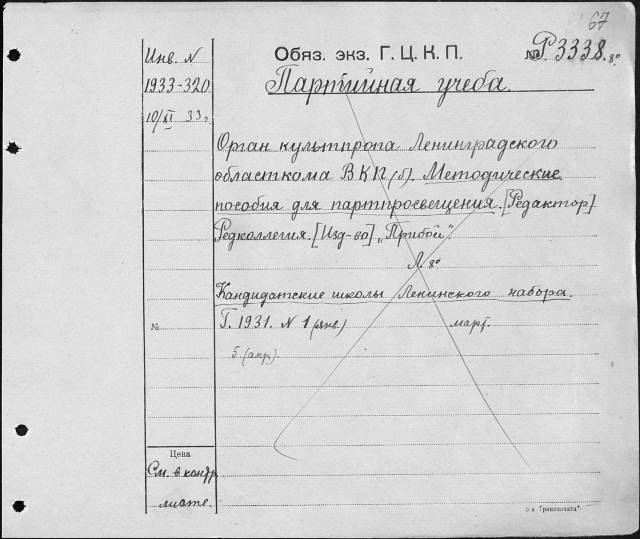 67
Инв. N
1933-320
10/XI 33 г.
Обяз. экз. Г.Ц.К.П.
№ Р3338. 8°
Партийная учеба.
Орган культпропа Ленинградского
областкома ВКП(б). Методические
пособия для партпросвещения. [Редактор]
Редколлегия. [Изд-во] „Прибой".
Л. 8°
Кандидатские школы Ленинского набора.
№ Г. 1931. N 1 (янв.) март.
5. (апр.).
Цена
См. в контр.
листе.